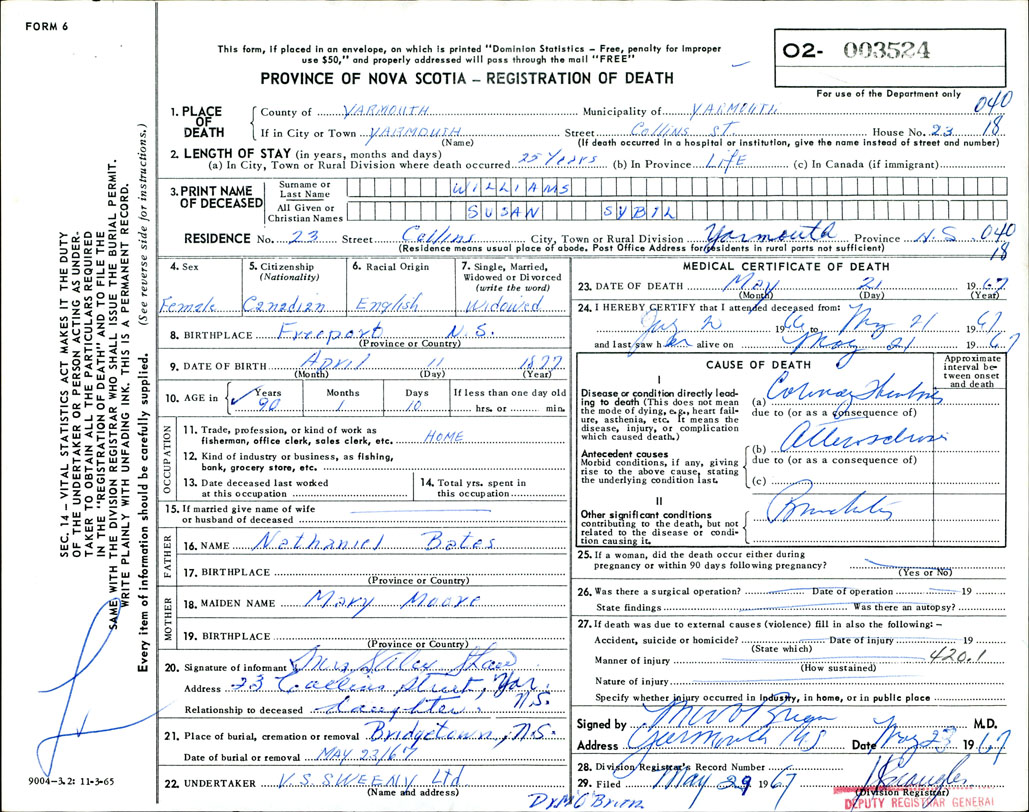 FORM 6
This form, if placed in an envelope, on which is printed "Dominion Statistics – Free, penalty for improper
use $50," and properly addressed will pass through the mail "FREE"
O2- 003524
PROVINCE OF NOVA SCOTIA – REGISTRATION OF DEATH
For use of the Department only
1. PLACE OF DEATH
County of YARMOUTH Municipality of YARMOUTH 040
If in City or Town YARMOUTH Street Collins ST. House No. 23 18
(Name) (If death occurred in a hospital or institution, give the name instead of street and number)
2. LENGTH OF STAY (in years, months and days)
(a) In City, Town or Rural Division where death occurred 25 Years (b) In Province LIFE (c) In Canada (if immigrant)
3. PRINT NAME OF DECEASED
Surname or Last Name WILLIAMS
All Given or Christian Names SUSAN SYBIL
RESIDENCE No. 23 Street Collins City, Town or Rural Division Yarmouth Province N.S. 040
(Residence means usual place of abode. Post Office Address for residents in rural parts not sufficient) 18
4. Sex Female
5. Citizenship (Nationality) Canadian
6. Racial Origin English
7. Single, Married, Widowed or Divorced (write the word) Widowed
8. BIRTHPLACE Freeport N.S.
(Province or Country)
9. DATE OF BIRTH April 11 1877
(Month) (Day) (Year)
10. AGE in Years 90 Months 1 Days 10 If less than one day old
hrs. or min.
OCCUPATION
11. Trade, profession, or kind of work as
fisherman, office clerk, sales clerk, etc. HOME
12. Kind of industry or business, as fishing,
bank, grocery store, etc.
13. Date deceased last worked
at this occupation
14. Total yrs. spent in
this occupation
15. If married give name of wife
or husband of deceased
FATHER
16. NAME Nathaniel Bates
17. BIRTHPLACE
(Province or Country)
MOTHER
18. MAIDEN NAME Mary Moore
19. BIRTHPLACE
(Province or Country)
20. Signature of informant Mrs
Address 23 Collins Street, Yar. N.S.
Relationship to deceased daughter.
21. Place of burial, cremation or removal Bridgetown, N.S.
Date of burial or removal MAY 23/67
22. UNDERTAKER V.S. SWEENY Ltd
(Name and address)
MEDICAL CERTIFICATE OF DEATH
23. DATE OF DEATH May 21 1967
(Month) (Day) (Year)
24. I HEREBY CERTIFY that I attended deceased from:
2 1966 to May 21 1967
and last saw her alive on May 21 1967
CAUSE OF DEATH
Approximate interval between onset and death
I
Disease or condition directly leading to death (This does not mean the mode of dying, e.g., heart failure, asthenia, etc. It means the disease, injury, or complication which caused death.)
(a) Coronary Thrombosis
due to (or as a consequence of)
Antecedent causes
Morbid conditions, if any, giving rise to the above cause, stating the underlying condition last.
(b)
due to (or as a consequence of)
(c)
II
Other significant conditions
contributing to the death, but not related to the disease or condition causing it. Bronchitis
25. If a woman, did the death occur either during
pregnancy or within 90 days following pregnancy?
(Yes or No)
26. Was there a surgical operation? Date of operation 19
State findings Was there an autopsy?
27. If death was due to external causes (violence) fill in also the following: –
Accident, suicide or homicide? Date of injury 19
(State which)
Manner of injury 420.1
(How sustained)
Nature of injury
Specify whether injury occurred in Industry, in home, or in public place
Signed by M.D.
Address Yarmouth NS Date May 23 1967
28. Division Registrar's Record Number
29. Filed May 29 1967
(Division Registrar)
DEPUTY REGISTRAR GENERAL
Dr M O'Brien
SEC. 14 – VITAL STATISTICS ACT MAKES IT THE DUTY
OF THE UNDERTAKER OR PERSON ACTING AS UNDER-
TAKER TO OBTAIN ALL THE PARTICULARS REQUIRED
IN THE "REGISTRATION OF DEATH" AND TO FILE THE
SAME WITH THE DIVISION REGISTRAR WHO SHALL ISSUE THE BURIAL PERMIT.
WRITE PLAINLY WITH UNFADING INK. THIS IS A PERMANENT RECORD.
Every item of information should be carefully supplied. (See reverse side for instructions.)
9004-3.2: 11-3-65